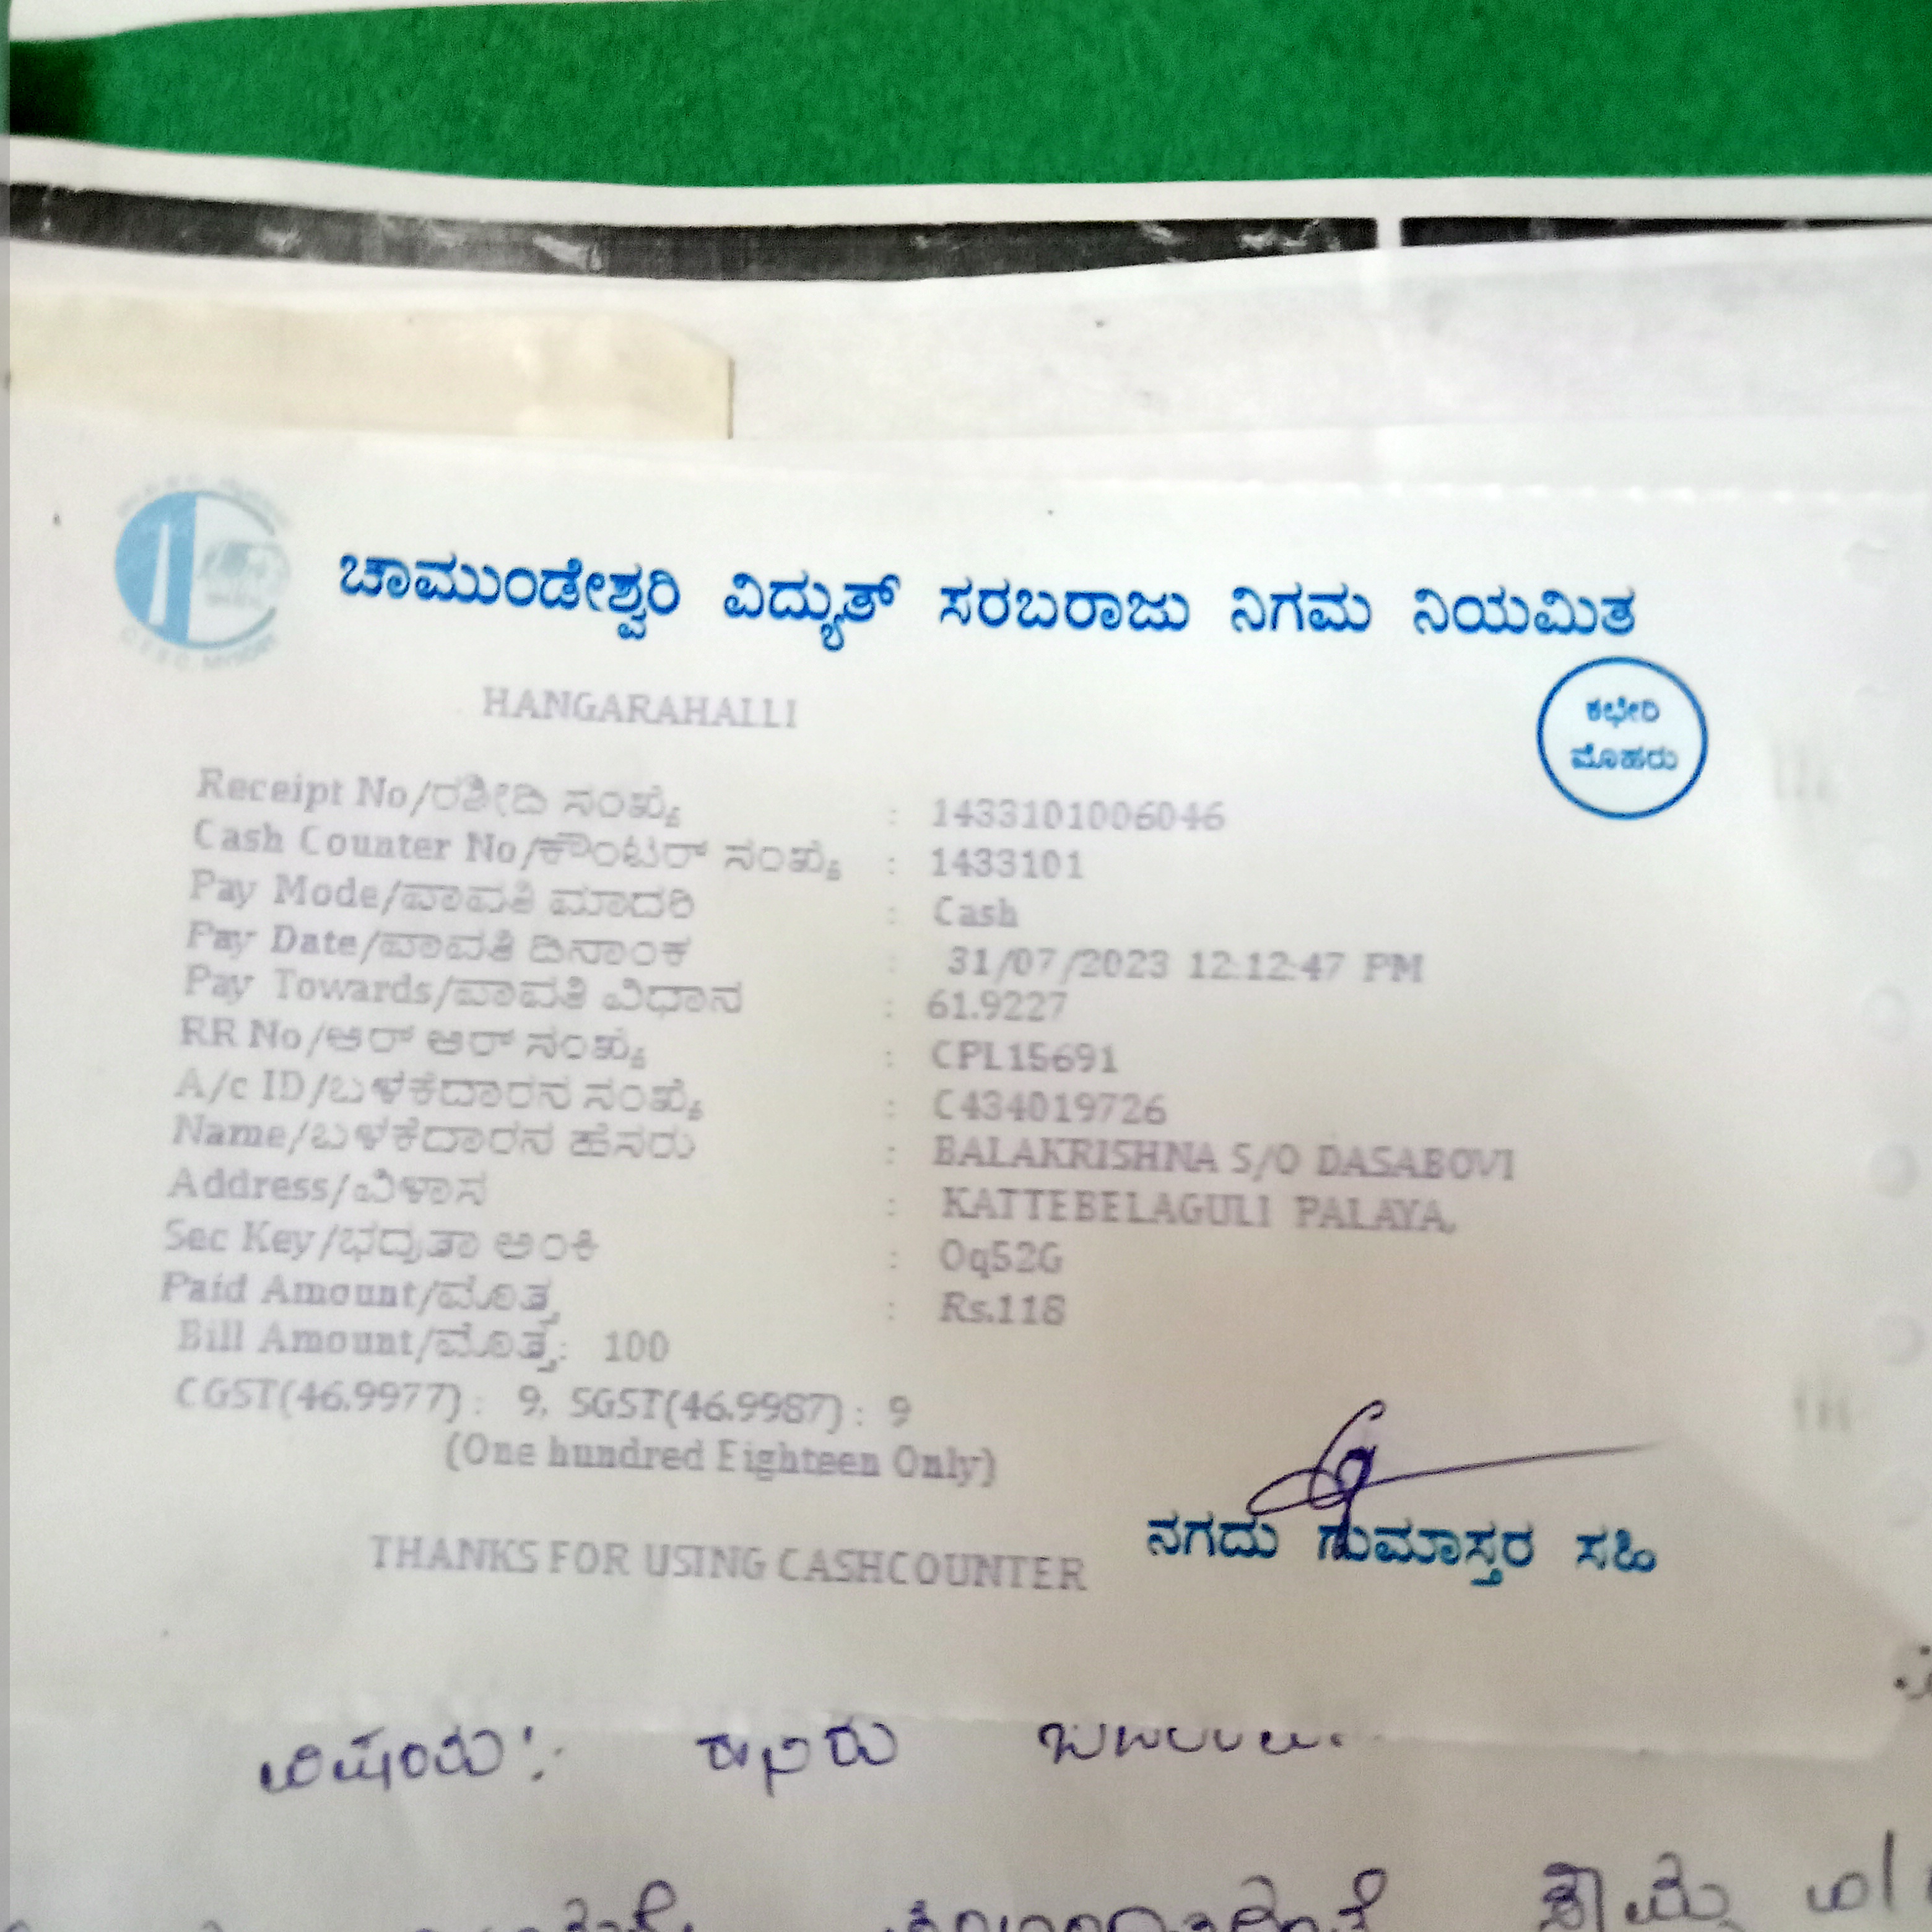 ಚಾಮುಂಡೇಶ್ವರಿ ವಿದ್ಯುತ್ ಸರಬರಾಜು ನಿಗಮ ನಿಯಮಿತ
HANGARAHALLI
ಕಛೇರಿ
ಮೊಹರು
Receipt No/ರಶೀದಿ ಸಂಖ್ಯೆ : 1433101006046
Cash Counter No/ಕೌಂಟರ್ ಸಂಖ್ಯೆ : 1433101
Pay Mode/ಪಾವತಿ ಮಾದರಿ : Cash
Pay Date/ಪಾವತಿ ದಿನಾಂಕ : 31/07/2023 12:12:47 PM
Pay Towards/ಪಾವತಿ ವಿಧಾನ : 61.9227
RR No/ಆರ್ ಆರ್ ಸಂಖ್ಯೆ : CPL15691
A/c ID/ಬಳಕೆದಾರನ ಸಂಖ್ಯೆ : C434019726
Name/ಬಳಕೆದಾರನ ಹೆಸರು : BALAKRISHNA S/O DASABOVI
Address/ವಿಳಾಸ : KATTEBELAGULI PALAYA,
Sec Key/ಭದ್ರತಾ ಅಂಕಿ : Oq52G
Paid Amount/ಮೊತ್ತ : Rs.118
Bill Amount/ಮೊತ್ತ: 100
CGST(46.9977) : 9, SGST(46.9987) : 9
(One hundred Eighteen Only)
THANKS FOR USING CASHCOUNTER
ನಗದು ಗುಮಾಸ್ತರ ಸಹಿ
ವಿಷಯ: